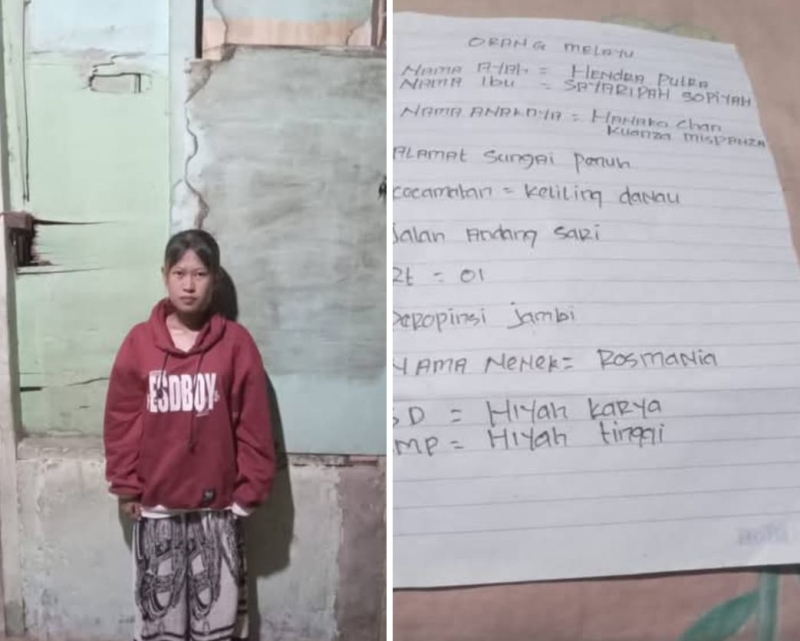 ESDBOY
ORANG MELAYU
NAMA AYAH = HENDRA PUTRA
NAMA IBU = SAYARIPAH SOPIYAH
NAMA ANAKNYA = HANAKO Chan
Kuanza MISPANZA
ALAMAT Sungai Penuh
cocamatan = Keliling danau
Jalan Andang Sari
Rt = 01
peropinsi jambi
NAMA NENEK = ROSMANIA
SD = HIYAH KARYA
SMP = HIYAH tinggi